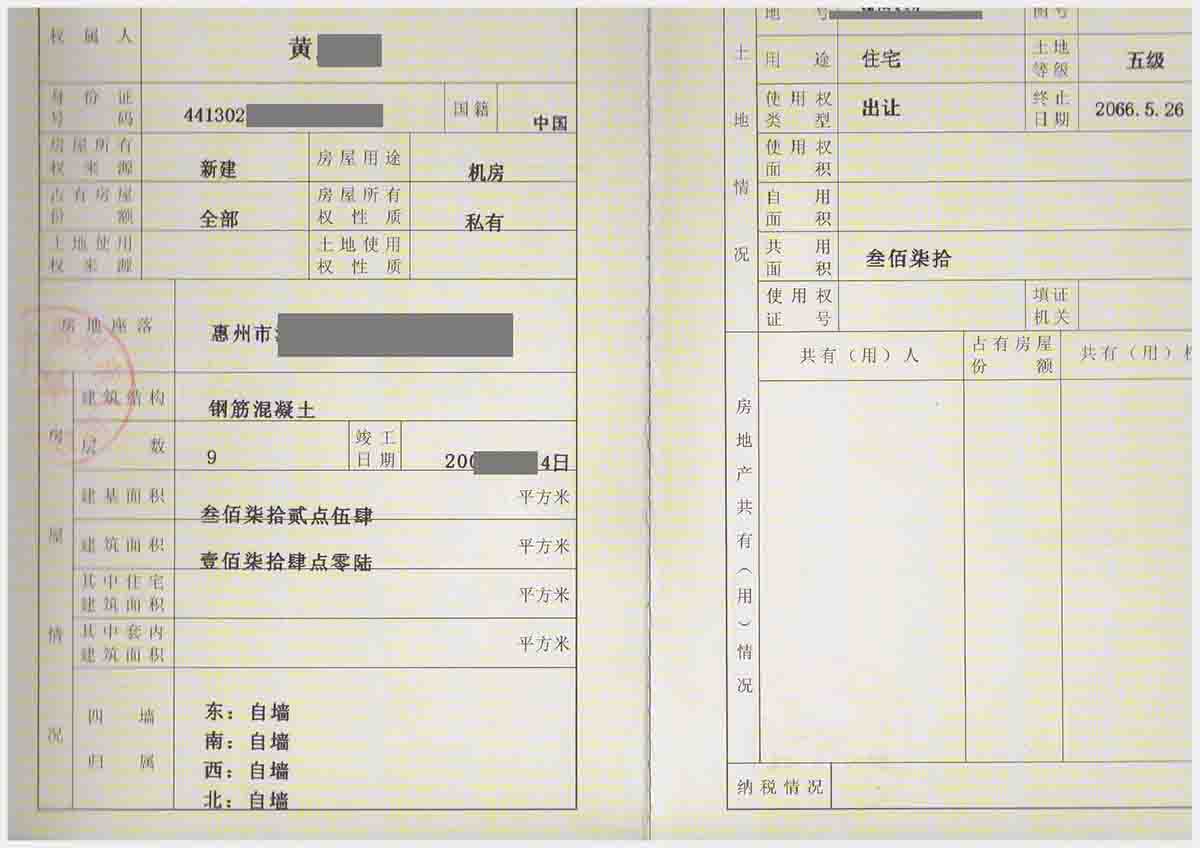 权属人 黄
身份证号码 441302 国籍 中国
房屋所有权来源 新建 房屋用途 机房
占有房屋份额 全部 房屋所有权性质 私有
土地使用权来源 土地使用权性质
房地座落 惠州市
房屋情况
建筑结构 钢筋混凝土
层数 9 竣工日期 200 4日
建基面积 叁佰柒拾贰点伍肆 平方米
建筑面积 壹佰柒拾肆点零陆 平方米
其中住宅建筑面积 平方米
其中套内建筑面积 平方米
四墙归属
东：自墙
南：自墙
西：自墙
北：自墙
土地情况
地号 图号
用途 住宅 土地等级 五级
使用权类型 出让 终止日期 2066.5.26
使用权面积
自用面积
共用面积 叁佰柒拾
使用权证号 填证机关
房地产共有(用)情况
共有(用)人 占有房屋份额 共有(用)
纳税情况